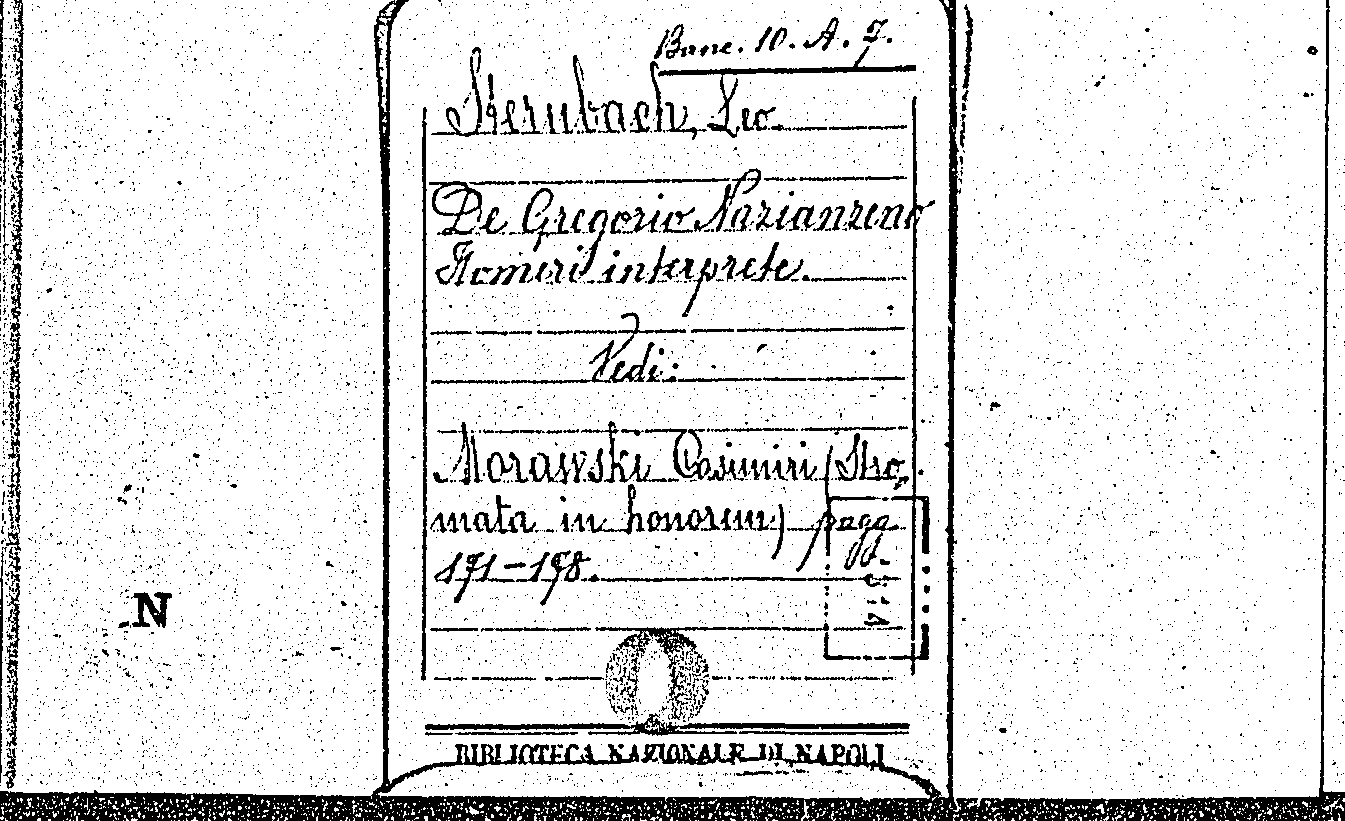 Banc. 10. A. 7.
Sternbach, Leo
De Gregorio Nazianzeno
Homeri interprete.
Vedi:
Morawski Casimiri (Stro,
mata in honorem) pagg.
171-178.
314
N
BIBLIOTECA NAZIONALE DI NAPOLI